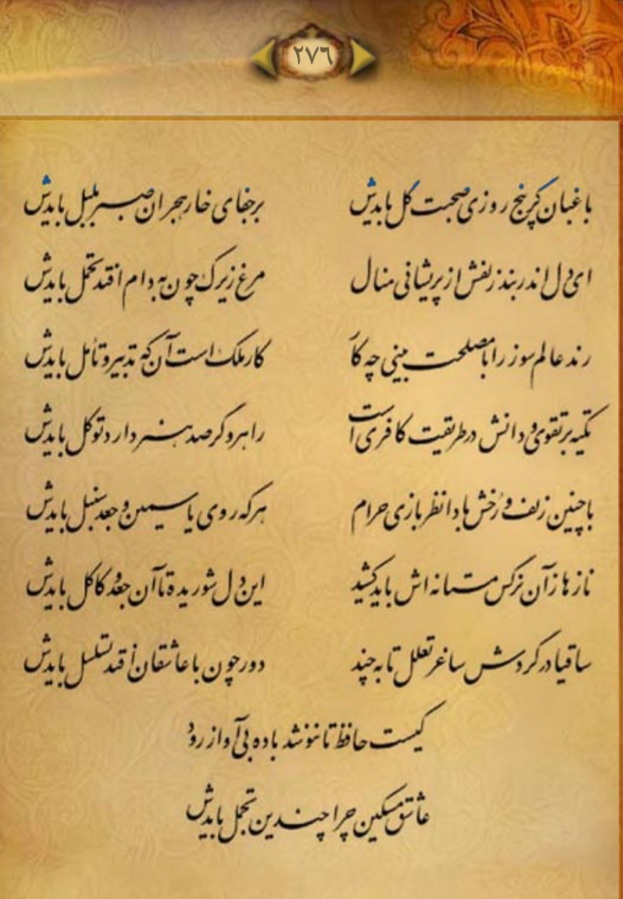 ۲۷۶
باغبان گر پنج روزی صحبت گل بایدش
بر جفای خار هجران صبر بلبل بایدش
ای دل اندر بند زلفش از پریشانی منال
مرغ زیرک چون به دام افتد تحمل بایدش
رند عالم سوز را با مصلحت بینی چه کار
کار ملک است آن که تدبیر و تأمل بایدش
تکیه بر تقوی و دانش در طریقت کافری است
راهرو گر صد هنر دارد توکل بایدش
با چنین زلف و رخش بادا نظربازی حرام
هر که روی یاسمین و جعد سنبل بایدش
نازها زان نرگس مستانه اش باید کشید
این دل شوریده تا آن جعد و کاکل بایدش
ساقیا در گردش ساغر تعلل تا به چند
دور چون با عاشقان افتد تسلسل بایدش
کیست حافظ تا ننوشد باده بی آواز رود
عاشق مسکین چرا چندین تجمل بایدش